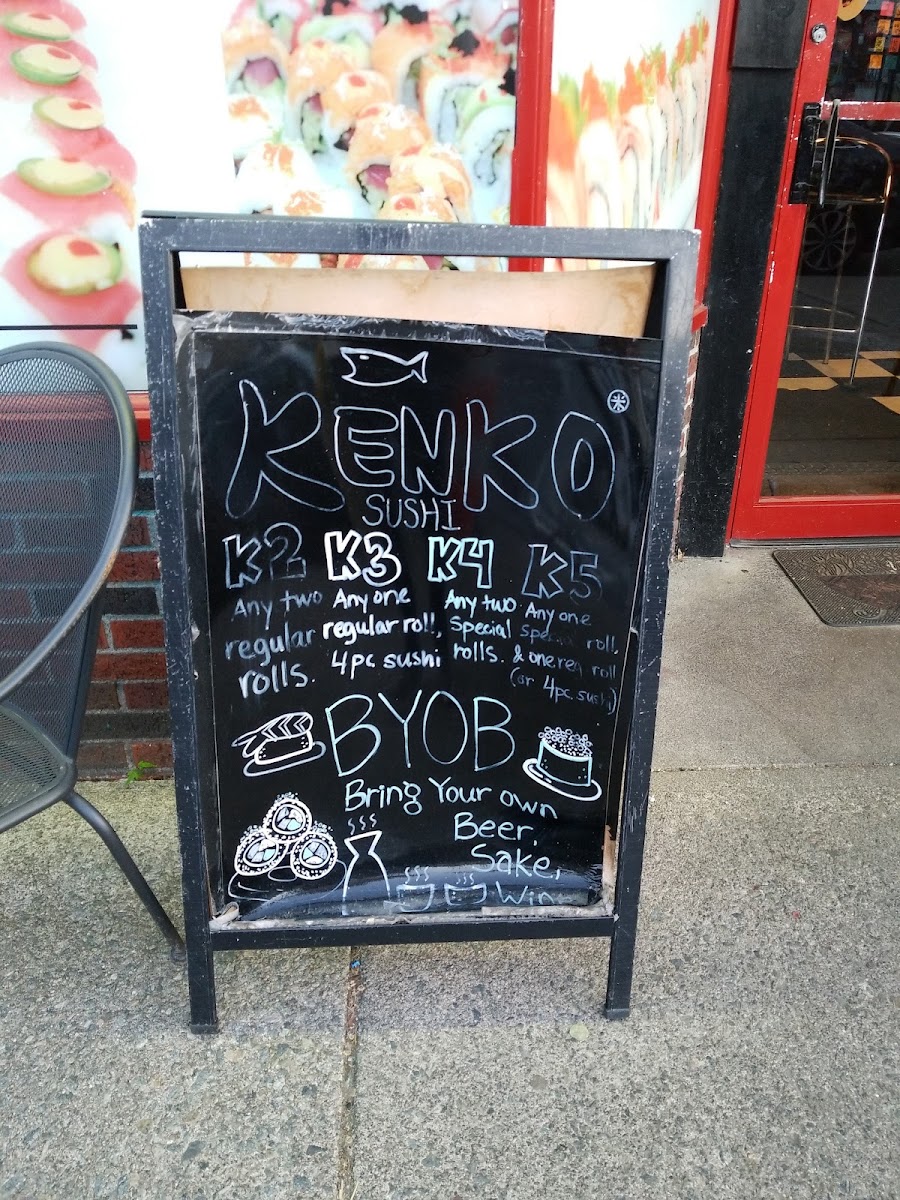 KENKO
SUSHI
K2
Any two
regular
rolls.
K3
Any one
regular roll,
4pc sushi
K4
Any two
special
rolls.
K5
Any one
special roll,
& one reg roll
(or 4pc. sushi)
BYOB
Bring Your own
Beer,
Sake,
Win